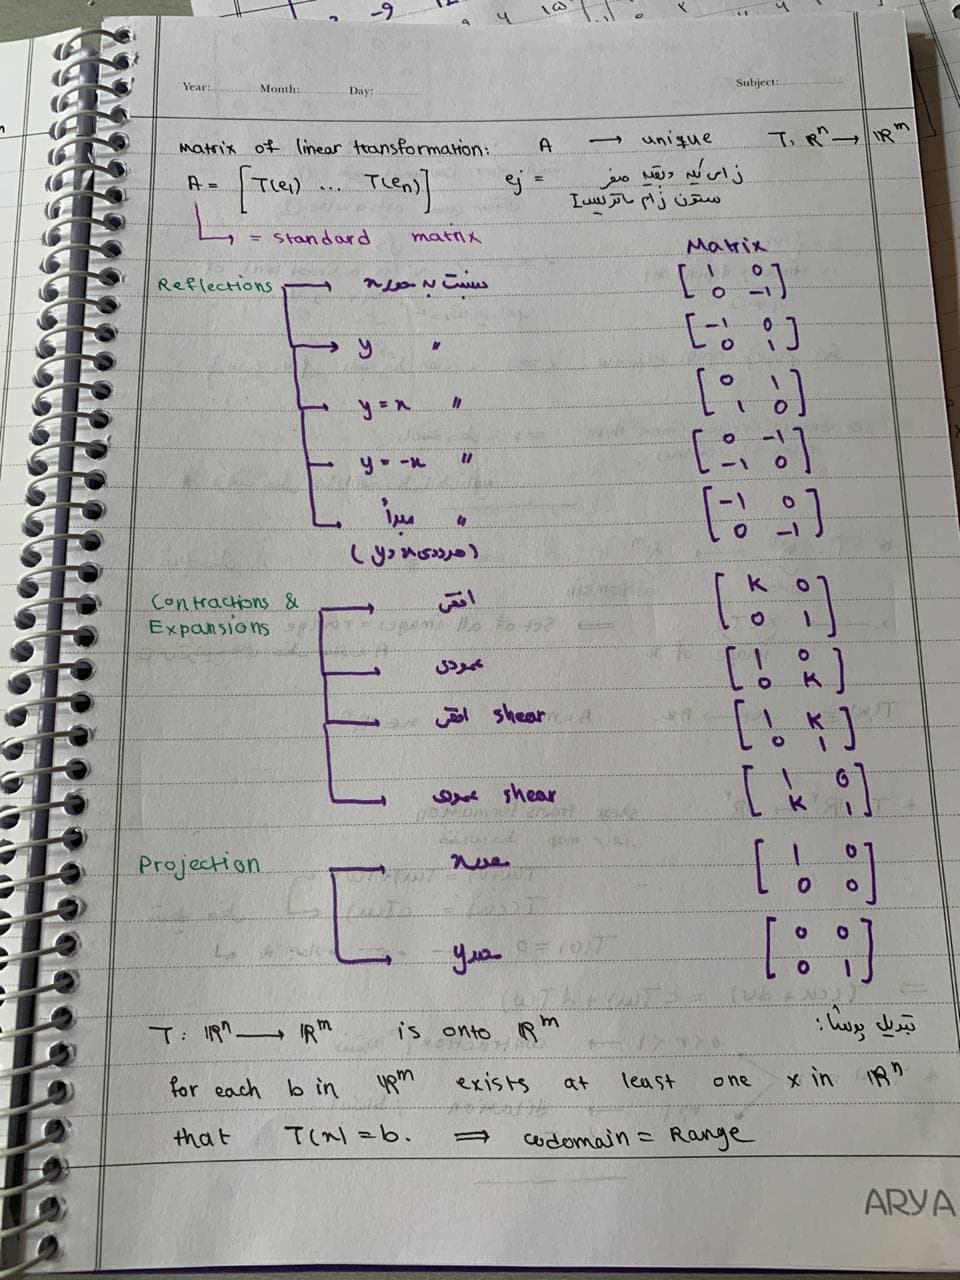 Year: Month: Day: Subject:
Matrix of linear transformation: A → unique T: ℝⁿ → ℝᵐ
A = [T(e₁) ... T(eₙ)] ej = ژ امی یک و بقیه صفر
ستون ژام ماتریس I
↳ = standard matrix
Matrix
Reflections → نسبت به محور x [1 0; 0 -1]
→ y " [-1 0; 0 1]
→ y = x " [0 1; 1 0]
→ y = -x " [0 -1; -1 0]
→ مبدأ " [-1 0; 0 -1]
(هردوی x و y)
Contractions & Expansions → افقی [K 0; 0 1]
→ عمودی [1 0; 0 K]
→ افقی shear [1 K; 0 1]
→ عمودی shear [1 0; K 1]
Projection → محور x [1 0; 0 0]
→ محور y [0 0; 0 1]
T: ℝⁿ → ℝᵐ is onto ℝᵐ تبدیل پوشا:
for each b in ℝᵐ exists at least one x in ℝⁿ
that T(x) = b. ⇒ codomain = Range
ARYA